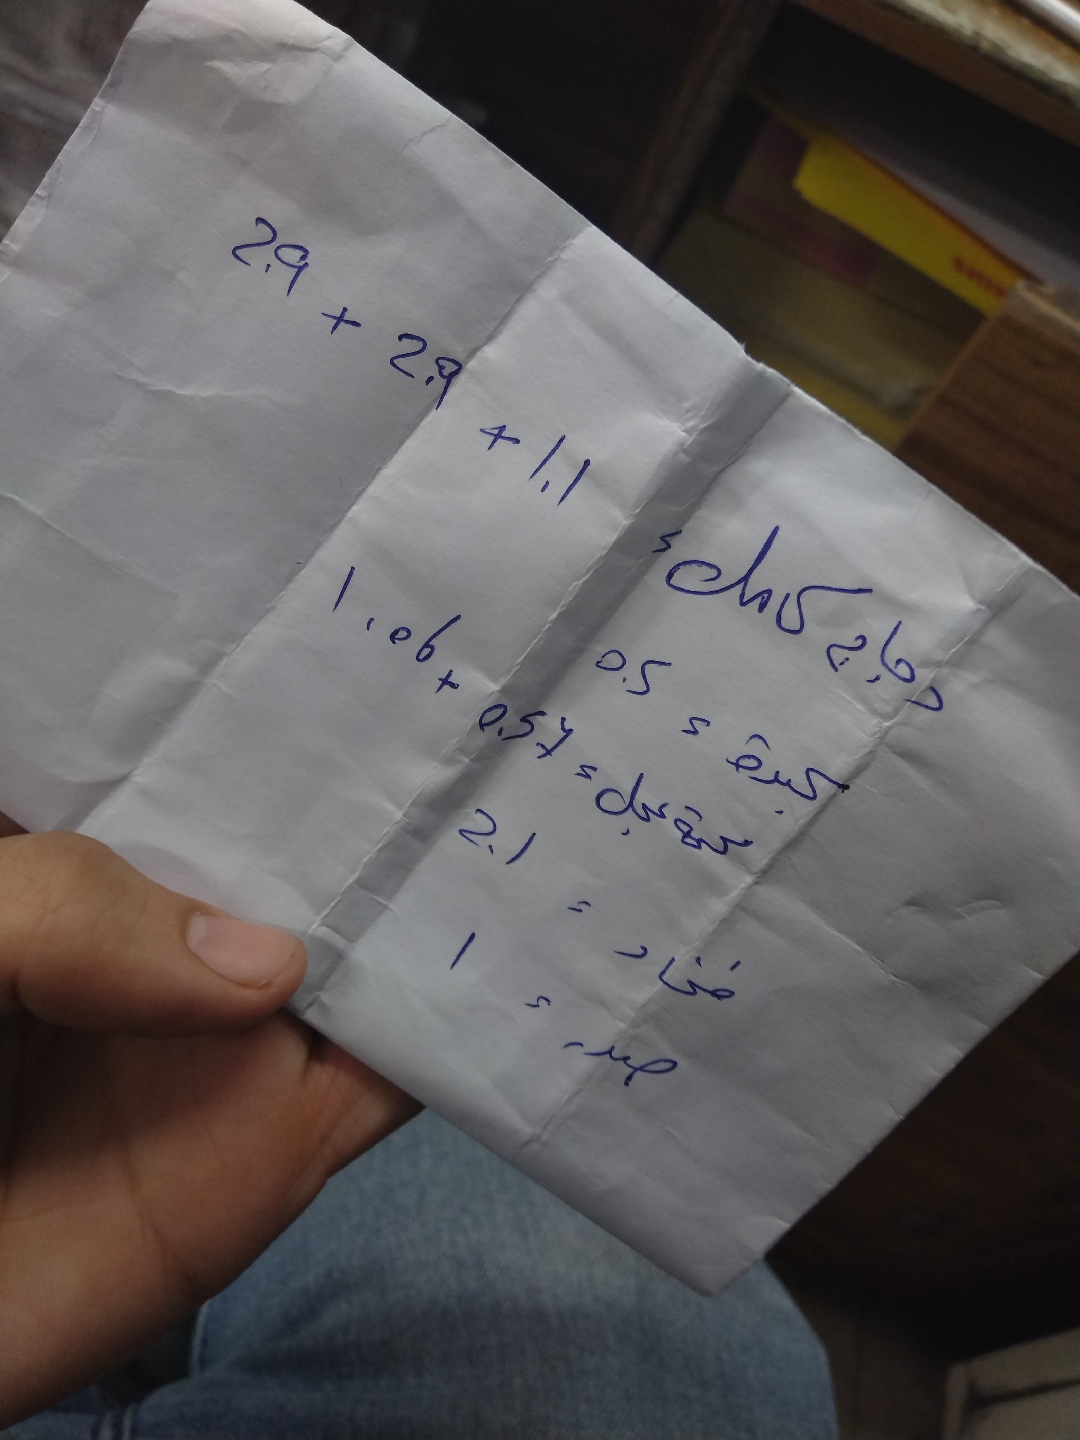 دجاج كامل = 1.1 + 2.9 + 2.9
كبدة = 0.5
= 0.57 + 1.06
فخاد = 2.1
صدر = 1